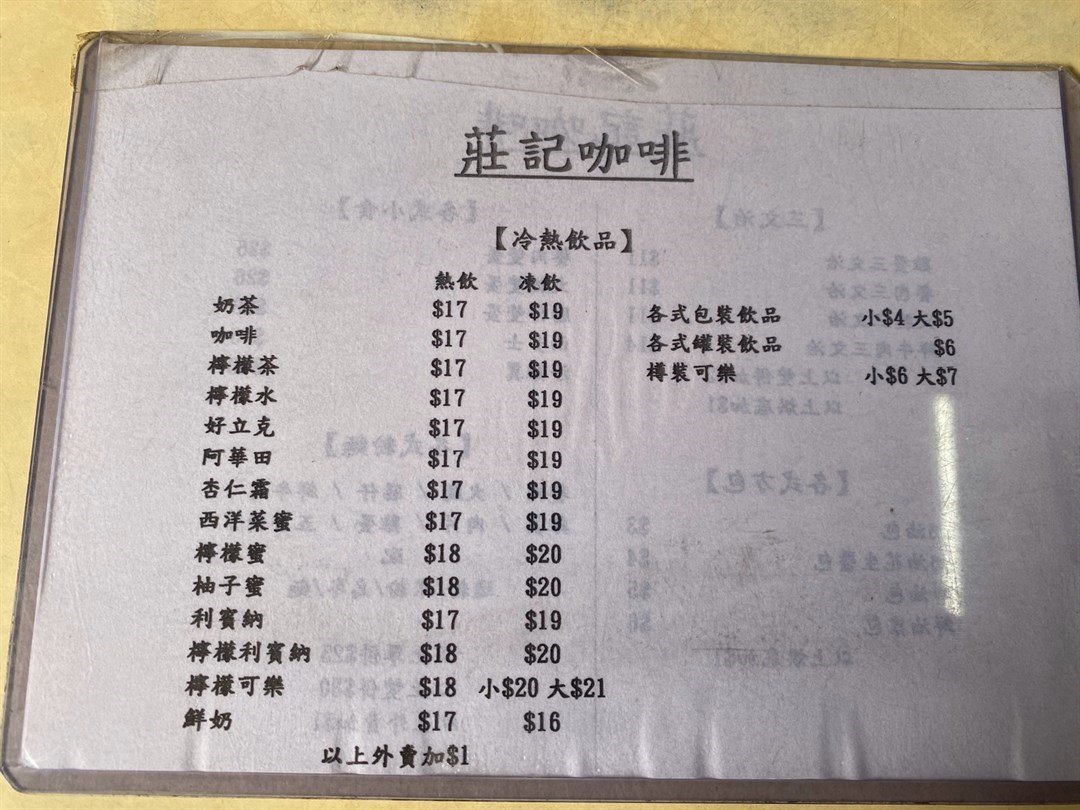 莊記咖啡
【冷熱飲品】
熱飲 凍飲
奶茶 $17 $19
咖啡 $17 $19
檸檬茶 $17 $19
檸檬水 $17 $19
好立克 $17 $19
阿華田 $17 $19
杏仁霜 $17 $19
西洋菜蜜 $17 $19
檸檬蜜 $18 $20
柚子蜜 $18 $20
利賓納 $17 $19
檸檬利賓納 $18 $20
檸檬可樂 $18 小$20 大$21
鮮奶 $17 $16
以上外賣加$1
各式包裝飲品 小$4 大$5
各式罐裝飲品 $6
樽裝可樂 小$6 大$7